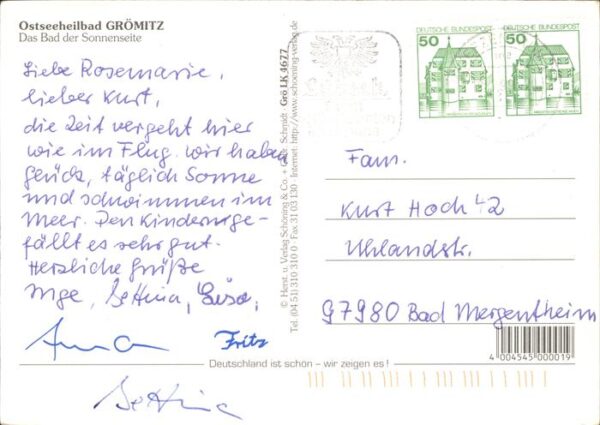 Ostseeheilbad GRÖMITZ
Das Bad der Sonnenseite
Liebe Rosemarie,
lieber Kurt,
die Zeit vergeht hier
wie im Flug. Wir haben
Glück, täglich Sonne
und schwimmen im
Meer. Den Kindern ge-
fällt es sehr gut.
Herzliche Grüße
Inge, Bettina, Lisa,
Anna
Fritz
Bettina
© Herst. u. Verlag Schöning & Co. + Gebr. Schmidt · Grö LK 4677
Tel. (04 51) 310 310 0 · Fax 31 03 130 · Internet: http://www.schoening-verlag.de
DEUTSCHE BUNDESPOST
50
DEUTSCHE BUNDESPOST
50
Fam.
Kurt Hoch 42
Uhlandstr.
97980 Bad Mergentheim
4 004545 000019
Deutschland ist schön – wir zeigen es!